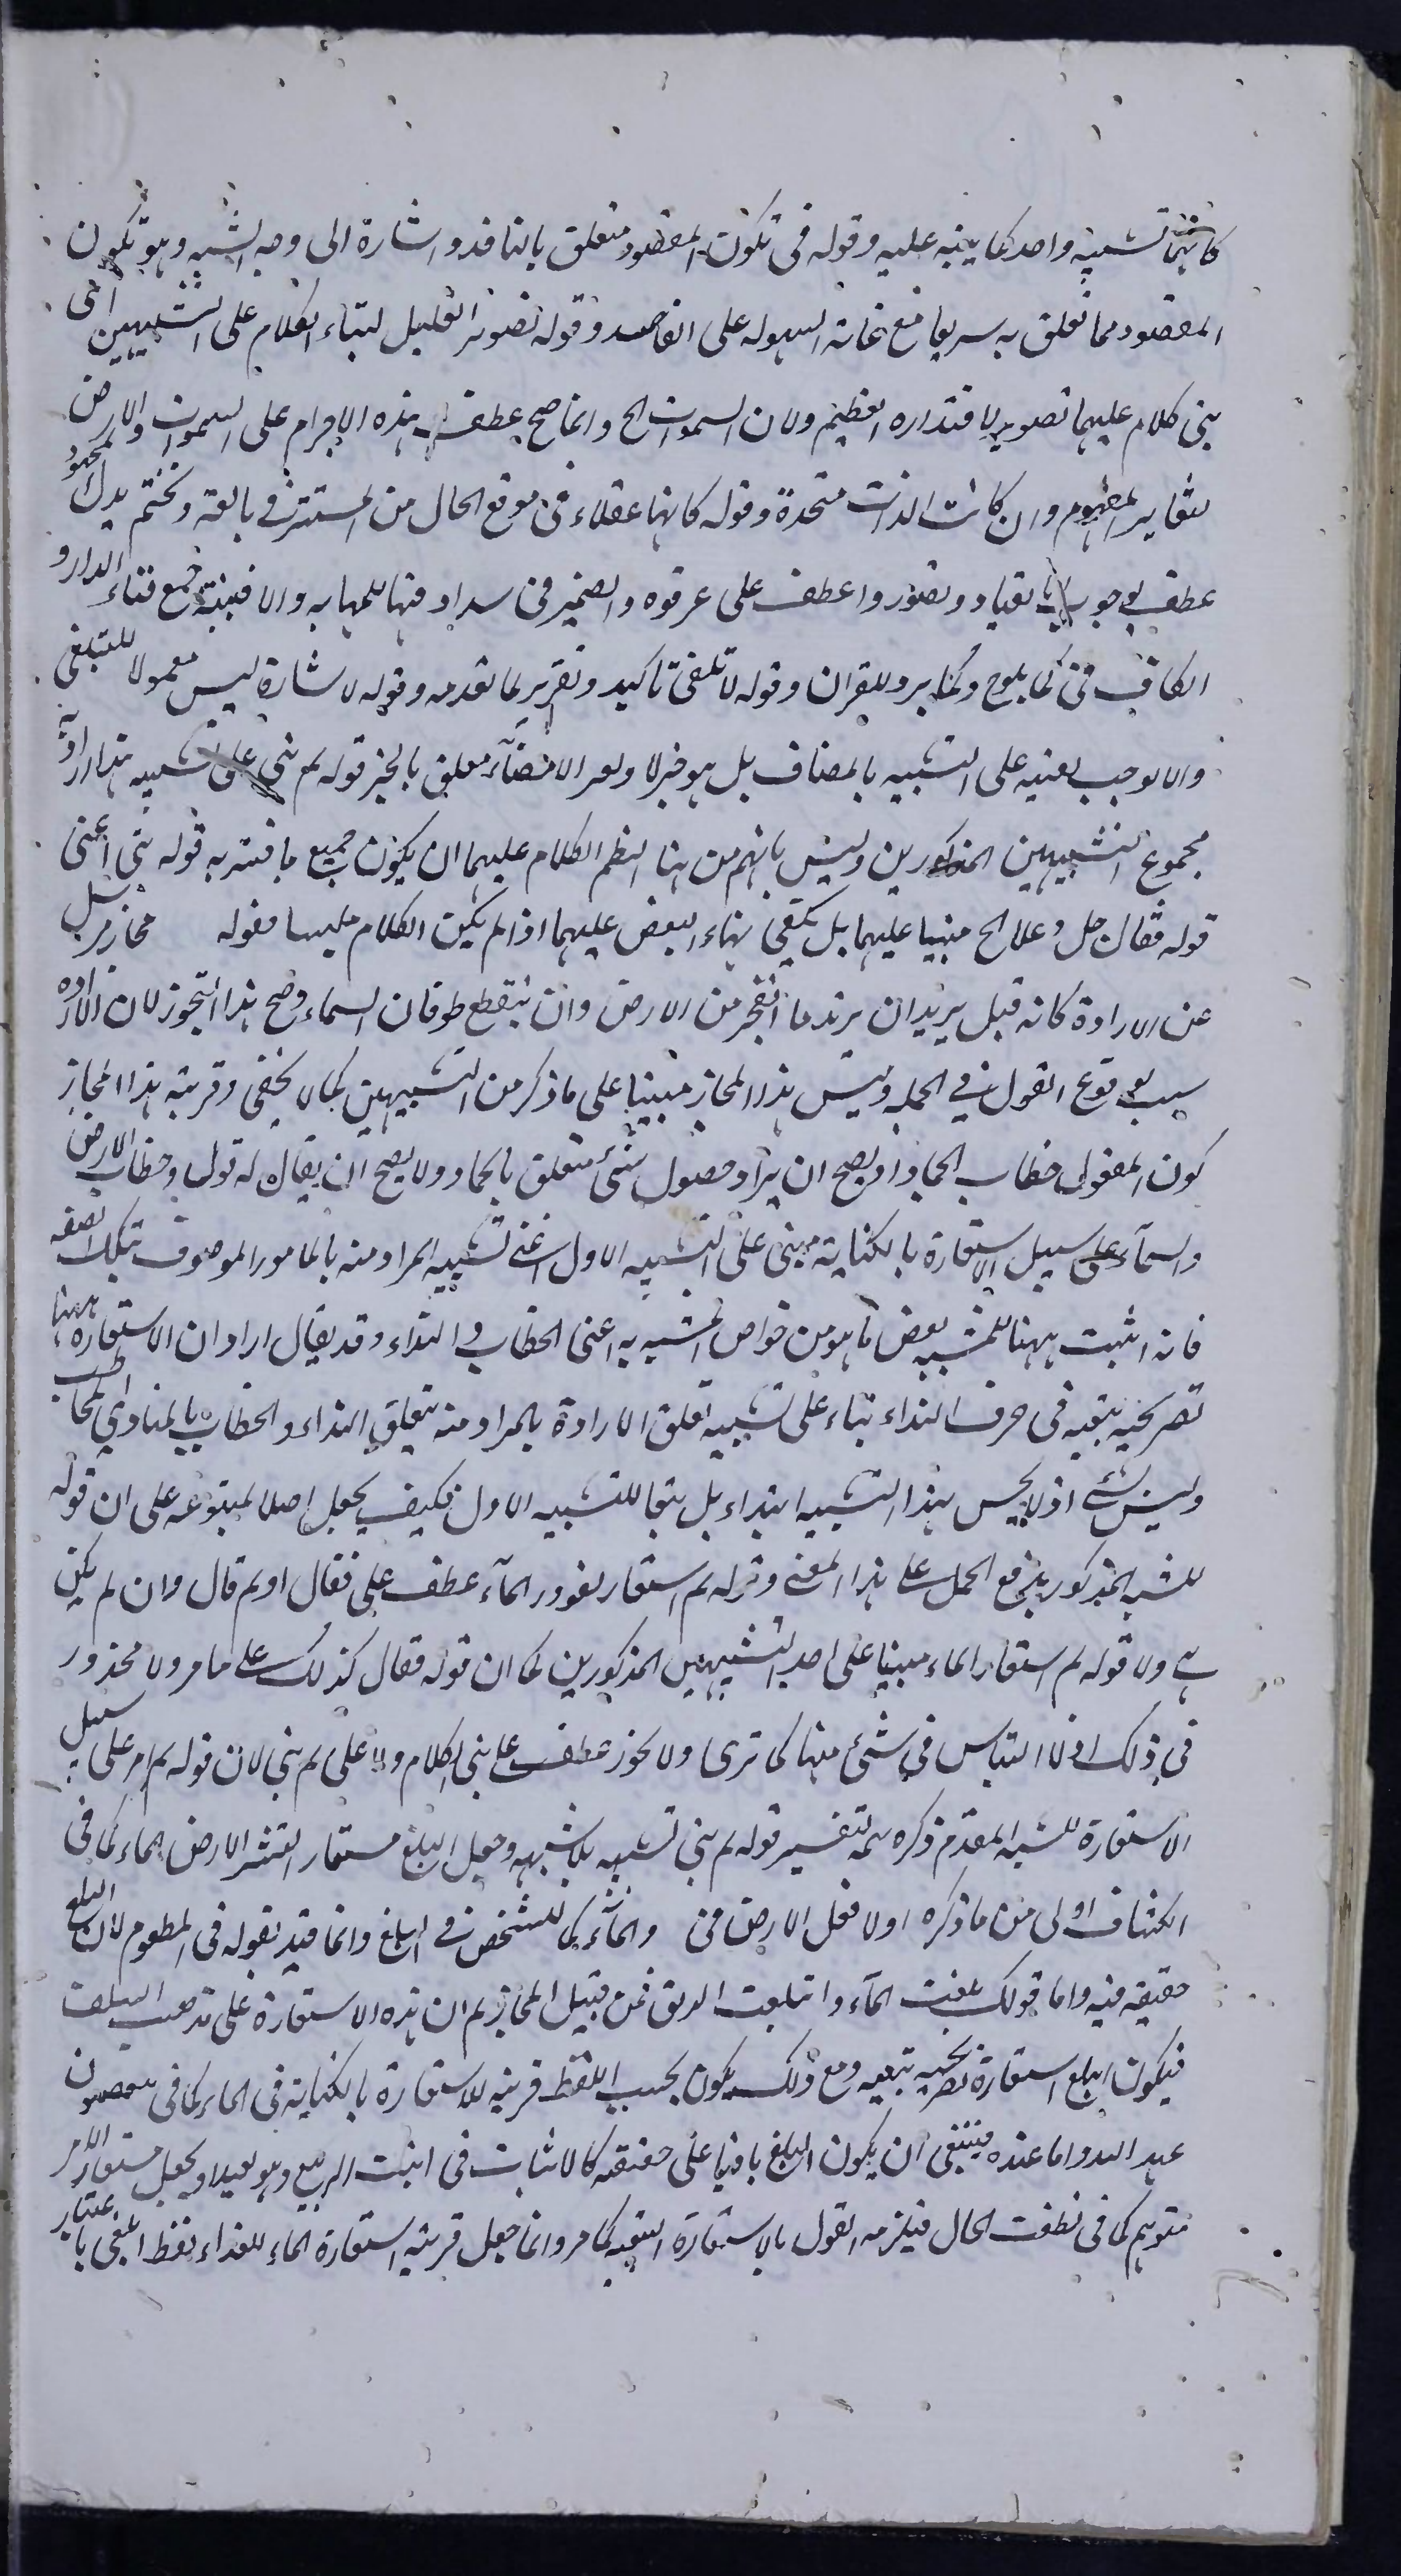 كانهما تشبيه واحد كما ينبه عليه وقوله في تكون المقصود متعلق بالنافذ واشارة الى وجه الشبه وهو تكون
المقصود مما تعلق به سريعا مع غاية السهوله على القاصد وقوله تصوير القليل لبناء الكلام على التشبيهين اى
بنى كلام عليهما تصويرا لاقتداره العظيم ولان السموات الخ وانما صح عطف هذه الاجرام على السموات والارض
لتغاير المفهوم وان كانت الذات متحدة وقوله كانها عقلاء في موقع الحال من المستتر في بالغة وتختم يدل
عطف لوجوب الانقياد وتصوروا عطف على عرفوه والضمير في سراد فيها للمهابه والافنية جمع فناء الدار و
الكاف في كما يلوح وكما يرد للقران وقوله لا تلقى تاكيد وتقرير لما تقدمه وقوله لاشارة ليس معمولا للتبلغي
والا لوجب نصبه على التشبيه بالمضاف بل هو خبر لا ولعمر الامضاء متعلق بالخبر قوله ثم بنى على تشبيه هذا اراد به
مجموع التشبيهين المذكورين وليس يلزم من هنا النظم الكلام عليهما ان يكون جميع ما فسر به قوله بنى اعنى
قوله فقال جل وعلا الخ مبنيا عليهما بل يكفي بناء البعض عليهما اذا لم يكن الكلام عليهما فقوله مجاز مرسل
عن الارادة كانه قيل يريد ان يرتد ما انفجر من الارض وان ينقطع طوفان السماء وصح هذا التجوز لان الارادة
سبب لوقوع القول في الجملة وليس هذا المجاز مبنيا على ما ذكر من التشبيهين كما لا يخفى وقرينة هذا المجاز
كون المقول خطاب الجماد اذ يصح ان يراد حصول شئ متعلق بالجماد ولا يصح ان يقال له قول وخطاب الارض
والسماء على سبيل الاستعارة بالكناية مبنى على التشبيه الاول اعنى تشبيه المراد منه بالمامور الموصوف بتلك الصفة
فانه اثبت ههنا للمشبه بعض ما هو من خواص المشبه به اعنى الخطاب والنداء وقد يقال اراد ان الاستعارة ههنا
تصريحية تبعية في حرف النداء بناء على تشبيه تعلق الارادة بالمراد منه بتعلق النداء والخطاب بالمنادى المخاطب
وليس بشئ اذ لا يحسن هذا التشبيه ابتداء بل تبعا للتشبيه الاول فكيف يجعل اصلا لمتبوعه على ان قوله
للشبه المذكور يدفع الحمل على هذا المعنى وقوله ثم استعار لغور الماء عطف على فقال او ثم قال وان لم يكن
هي ولا قوله ثم استعار الماء مبنيا على احد التشبيهين المذكورين كما ان قوله فقال كذلك على ما مر ولا محذور
في ذلك اذ لا التباس في شئ منها كما ترى ولا يجوز عطفه على بنى الكلام ولا على ثم بنى لان قوله ثم امر على سبيل
الاستعارة للشبه المقدم ذكره تتمة لتفسير قوله ثم بنى تشبيه بلا شبهه وجعل البلع مستعار لنشف الارض الماء كما في
الكشاف اولى من ما ذكره اولا فعل الارض في والماء كالشخص في البلع وانما قيد بقوله في المطعوم لان البلع
حقيقه فيه واما قولك بلعت الماء وابتلعت الريق فمن قبيل المجاز ثم ان هذه الاستعارة على مذهب السلف
فيكون البلع استعارة تصريحية تبعيه ومع ذلك يكون بحسب اللفظ قرينة للاستعارة بالكناية في الماء كما في ينقضون
عهد الله واما عنده فينبغى ان يكون البلع باقيا على حقيقته كالاثبات في انبت الربيع وهو بعيد او يجعل مستعار لامر
متوهم كما في نطقت الحال فيلزمه القول بالاستعارة التبعية كما مر وانما جعل قرينة استعارة الماء للغذاء لفظ ابلعي باعتبار